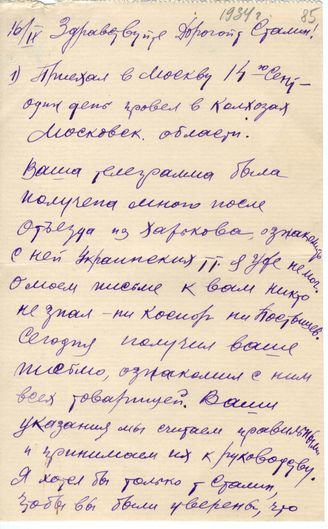 1934 г. 85
16/IX Здравствуйте Дорогой т. Сталин!
1) Приехал в Москву 14го Сент-
один день провел в Колхозах
Московск. области.
Ваша телеграмма была
получена много после
отъезда из Харькова, ознакомить
с ней Украинских т.т. я уже не мог.
О моем письме к вам никто
не знал - ни Косиор ни Постышев.
Сегодня получил ваше
письмо, ознакомил с ним
всех товарищей. Ваши
указания мы считаем правильными
и принимаем их к руководству.
Я хотел бы только т. Сталин,
чтобы вы были уверены, что